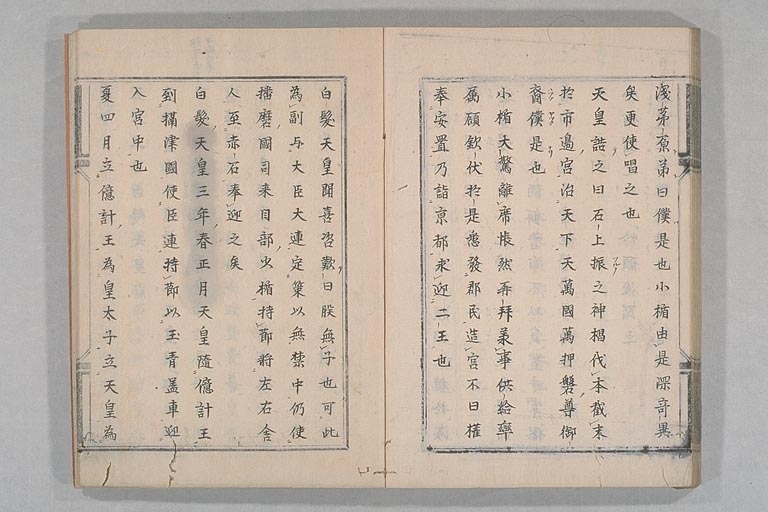 淺茅原弟曰僕是也小楯由是深奇異
矣更使唱之也
天皇誥之曰石上振之神榲伐本截末
於市邉宮治天下天萬國萬押磐尊御
裔僕是也
小楯大驚離席悵然再拜美事供給率
属頋欽伏於是悉發郡民造宮不日權
奉安置乃詣京都求迎二王也
白髮天皇聞喜咨歎曰朕無子也可此
為副与大臣大連定策以無禁中仍使
播磨國司来目部少楯持莭将左右舎
人至赤石奉迎之矣
白髮天皇三年春正月天皇隨億計王
到攝津國使臣連持莭以王青盖車迎
入宮中也
夏四月立億計王為皇太子立天皇為